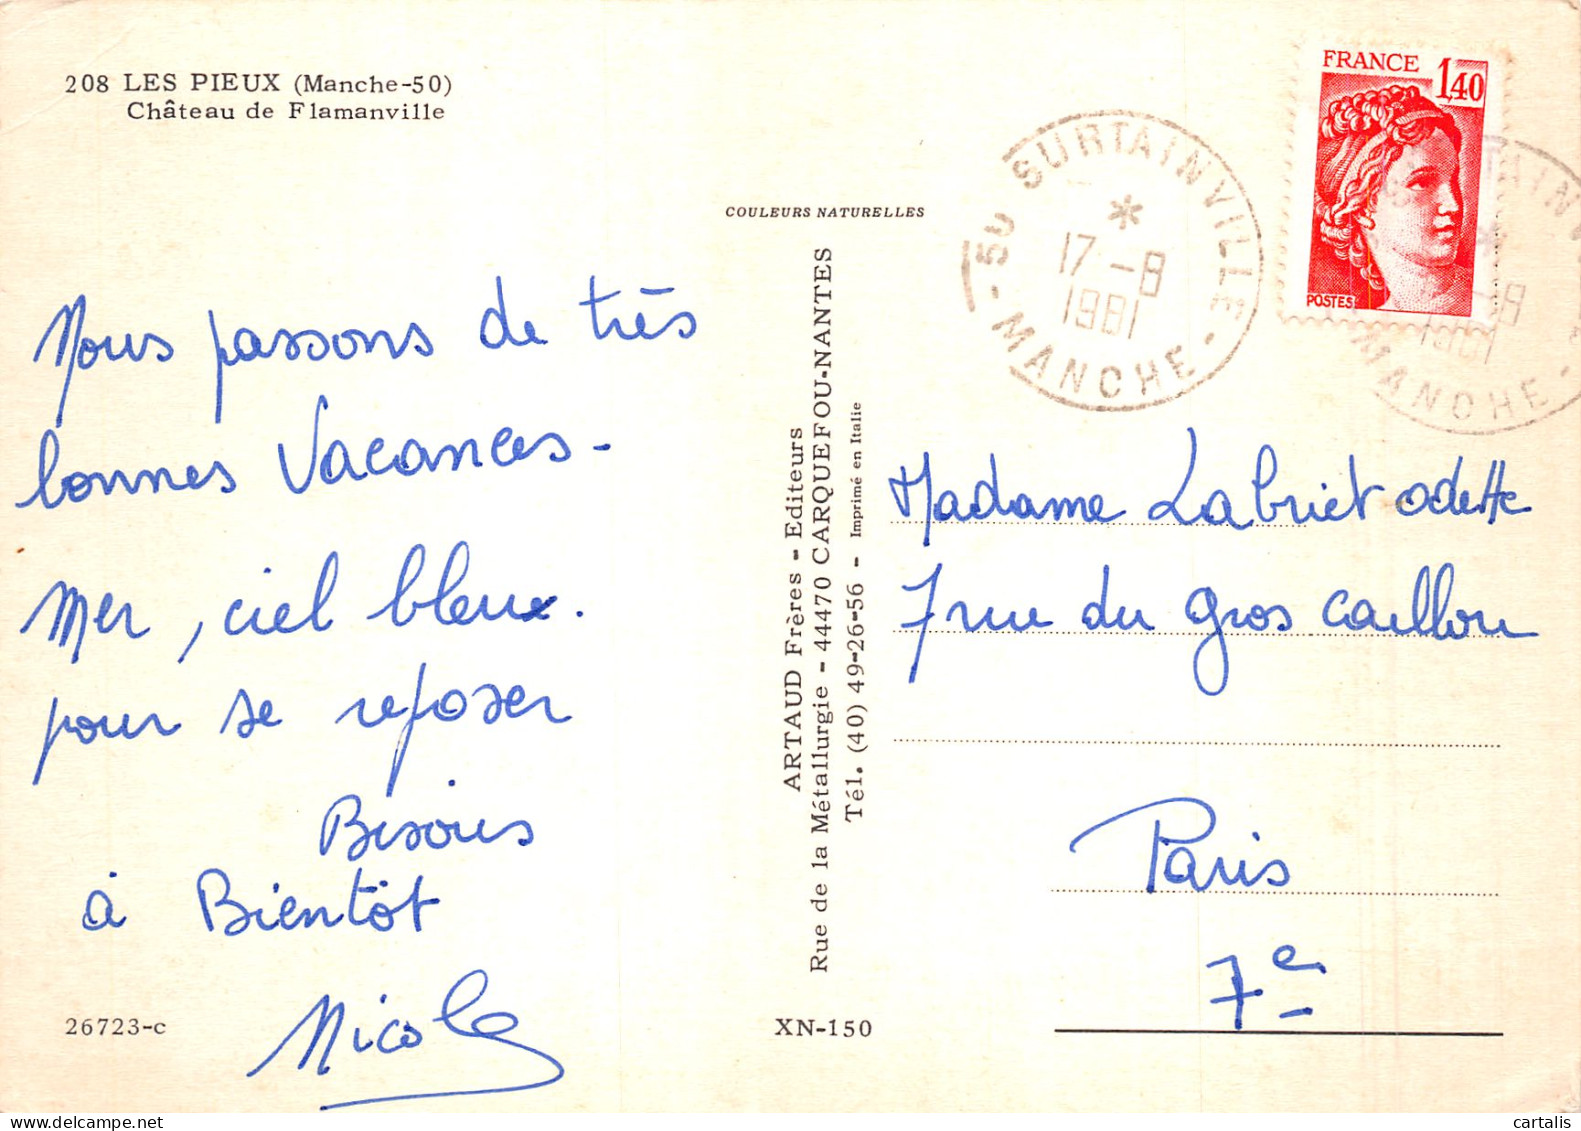 208 LES PIEUX (Manche-50)
Château de Flamanville
Nous passons de très
bonnes Vacances -
Mer, ciel bleux.
pour se reposer
Bisous
à Bientôt
Nicole
26723-c
COULEURS NATURELLES
ARTAUD Frères - Editeurs
Rue de la Métallurgie - 44470 CARQUEFOU-NANTES
Tél. (40) 49-26-56 - Imprimé en Italie
XN-150
50 SURTAINVILLE
17-8
1981
- MANCHE -
FRANCE 1,40
POSTES
TAINV
-8
1981
MANCHE -
Madame Labriet odette
7 rue du gros caillou
Paris
7e
cartalis